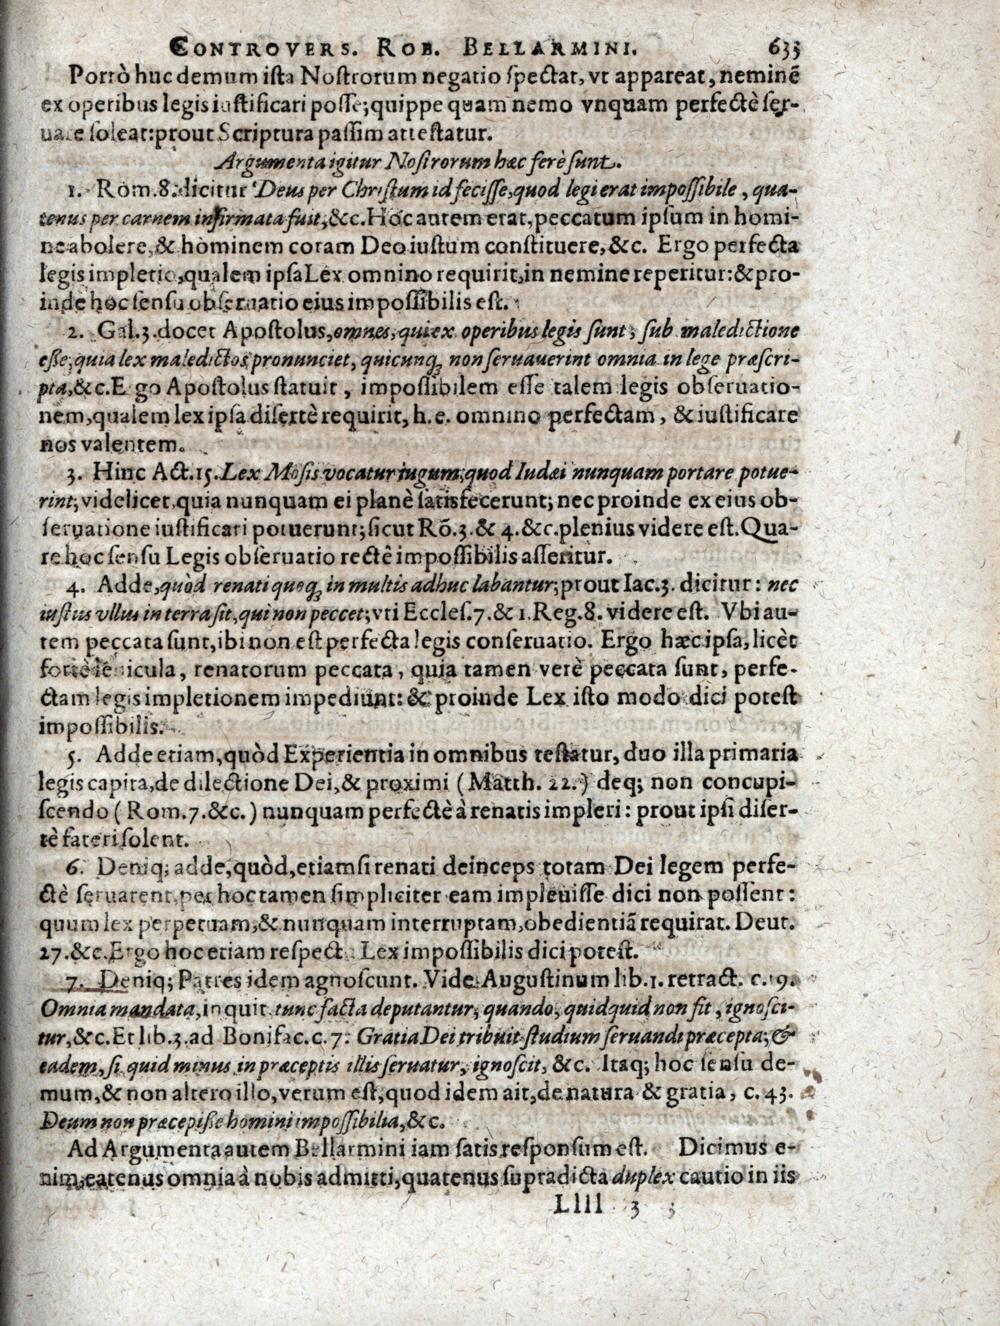 CONTROVERS. ROB. BELLARMINI. 635
Porrò huc demum iſta Noſtrorum negatio ſpectat, vt appareat, neminē
ex operibus legis iuſtificari poſſe; quippe quam nemo vnquam perfectè ſer-
uare ſoleat: prout Scriptura paſſim atteſtatur.
Argumenta igitur Noſtrorum hæc ferè ſunt.
1. Rom. 8. dicitur Deus per Chriſtum id feciſſe, quod legi erat impoſſibile, qua-
tenus per carnem infirmata fuit, &c. Hoc autem erat, peccatum ipſum in homi-
ne abolere, & hominem coram Deo iuſtum conſtituere, &c. Ergo perfecta
legis impletio, qualem ipſa Lex omnino requirit, in nemine reperitur: & pro-
inde hoc ſenſu obſeruatio eius impoſſibilis eſt.
2. Gal. 3. docet Apoſtolus, omnes, qui ex operibus legis ſunt, ſub maledictione
eſſe, quia lex maledictos pronunciet, quicunq; non ſeruauerint omnia in lege præſcri-
pta, &c. Ergo Apoſtolus ſtatuit, impoſſibilem eſſe talem legis obſeruatio-
nem, qualem lex ipſa diſertè requirit, h.e. omnino perfectam, & iuſtificare
nos valentem.
3. Hinc Act. 15. Lex Moſis vocatur iugum, quod Iudæi nunquam portare potue-
rint; videlicet, quia nunquam ei planè ſatisfecerunt; nec proinde ex eius ob-
ſeruatione iuſtificari potuerunt; ſicut Rō. 3. & 4. &c. plenius videre eſt. Qua-
re hoc ſenſu Legis obſeruatio rectè impoſſibilis aſſeritur.
4. Adde, quòd renati quoq; in multis adhuc labantur; prout Iac. 3. dicitur: nec
iuſtus vllus in terra ſit, qui non peccet; vti Eccleſ. 7. & 1. Reg. 8. videre eſt. Vbi au-
tem peccata ſunt, ibi non eſt perfecta legis conſeruatio. Ergo hæc ipſa, licèt
fortè leuicula, renatorum peccata, quia tamen verè peccata ſunt, perfe-
ctam legis impletionem impediunt: & proinde Lex iſto modo dici poteſt
impoſſibilis.
5. Adde etiam, quòd Experientia in omnibus teſtatur, duo illa primaria
legis capita, de dilectione Dei, & proximi (Matth. 22.) deq; non concupi-
ſcendo (Rom. 7. &c.) nunquam perfectè à renatis impleri: prout ipſi diſer-
tè fateri ſolent.
6. Deniq; adde, quòd, etiamſi renati deinceps totam Dei legem perfe-
ctè ſeruarent, per hoc tamen ſimpliciter eam impleuiſſe dici non poſſent:
quum lex perpetuam, & nunquam interruptam, obedientiā requirat. Deut.
27. &c. Ergo hoc etiam reſpectu Lex impoſſibilis dici poteſt.
7. Deniq; Patres idem agnoſcunt. Vide Auguſtinum lib. 1. retract. c. 19.
Omnia mandata, inquit, tunc facta deputantur, quando, quidquid non fit, ignoſci-
tur, &c. Et lib. 3. ad Bonifac. c. 7. Gratia Dei tribuit ſtudium ſeruandi præcepta; &
eadem, ſi quid minus in præceptis illis ſeruatur, ignoſcit, &c. Itaq; hoc ſenſu de-
mum, & non altero illo, verum eſt, quod idem ait, de natura & gratia, c. 43.
Deum non præcepiſſe homini impoſſibilia, &c.
Ad Argumenta autem Bellarmini iam ſatis reſponſum eſt. Dicimus e-
nim, eatenus omnia à nobis admitti, quatenus ſupradicta duplex cautio in iis
Llll 3